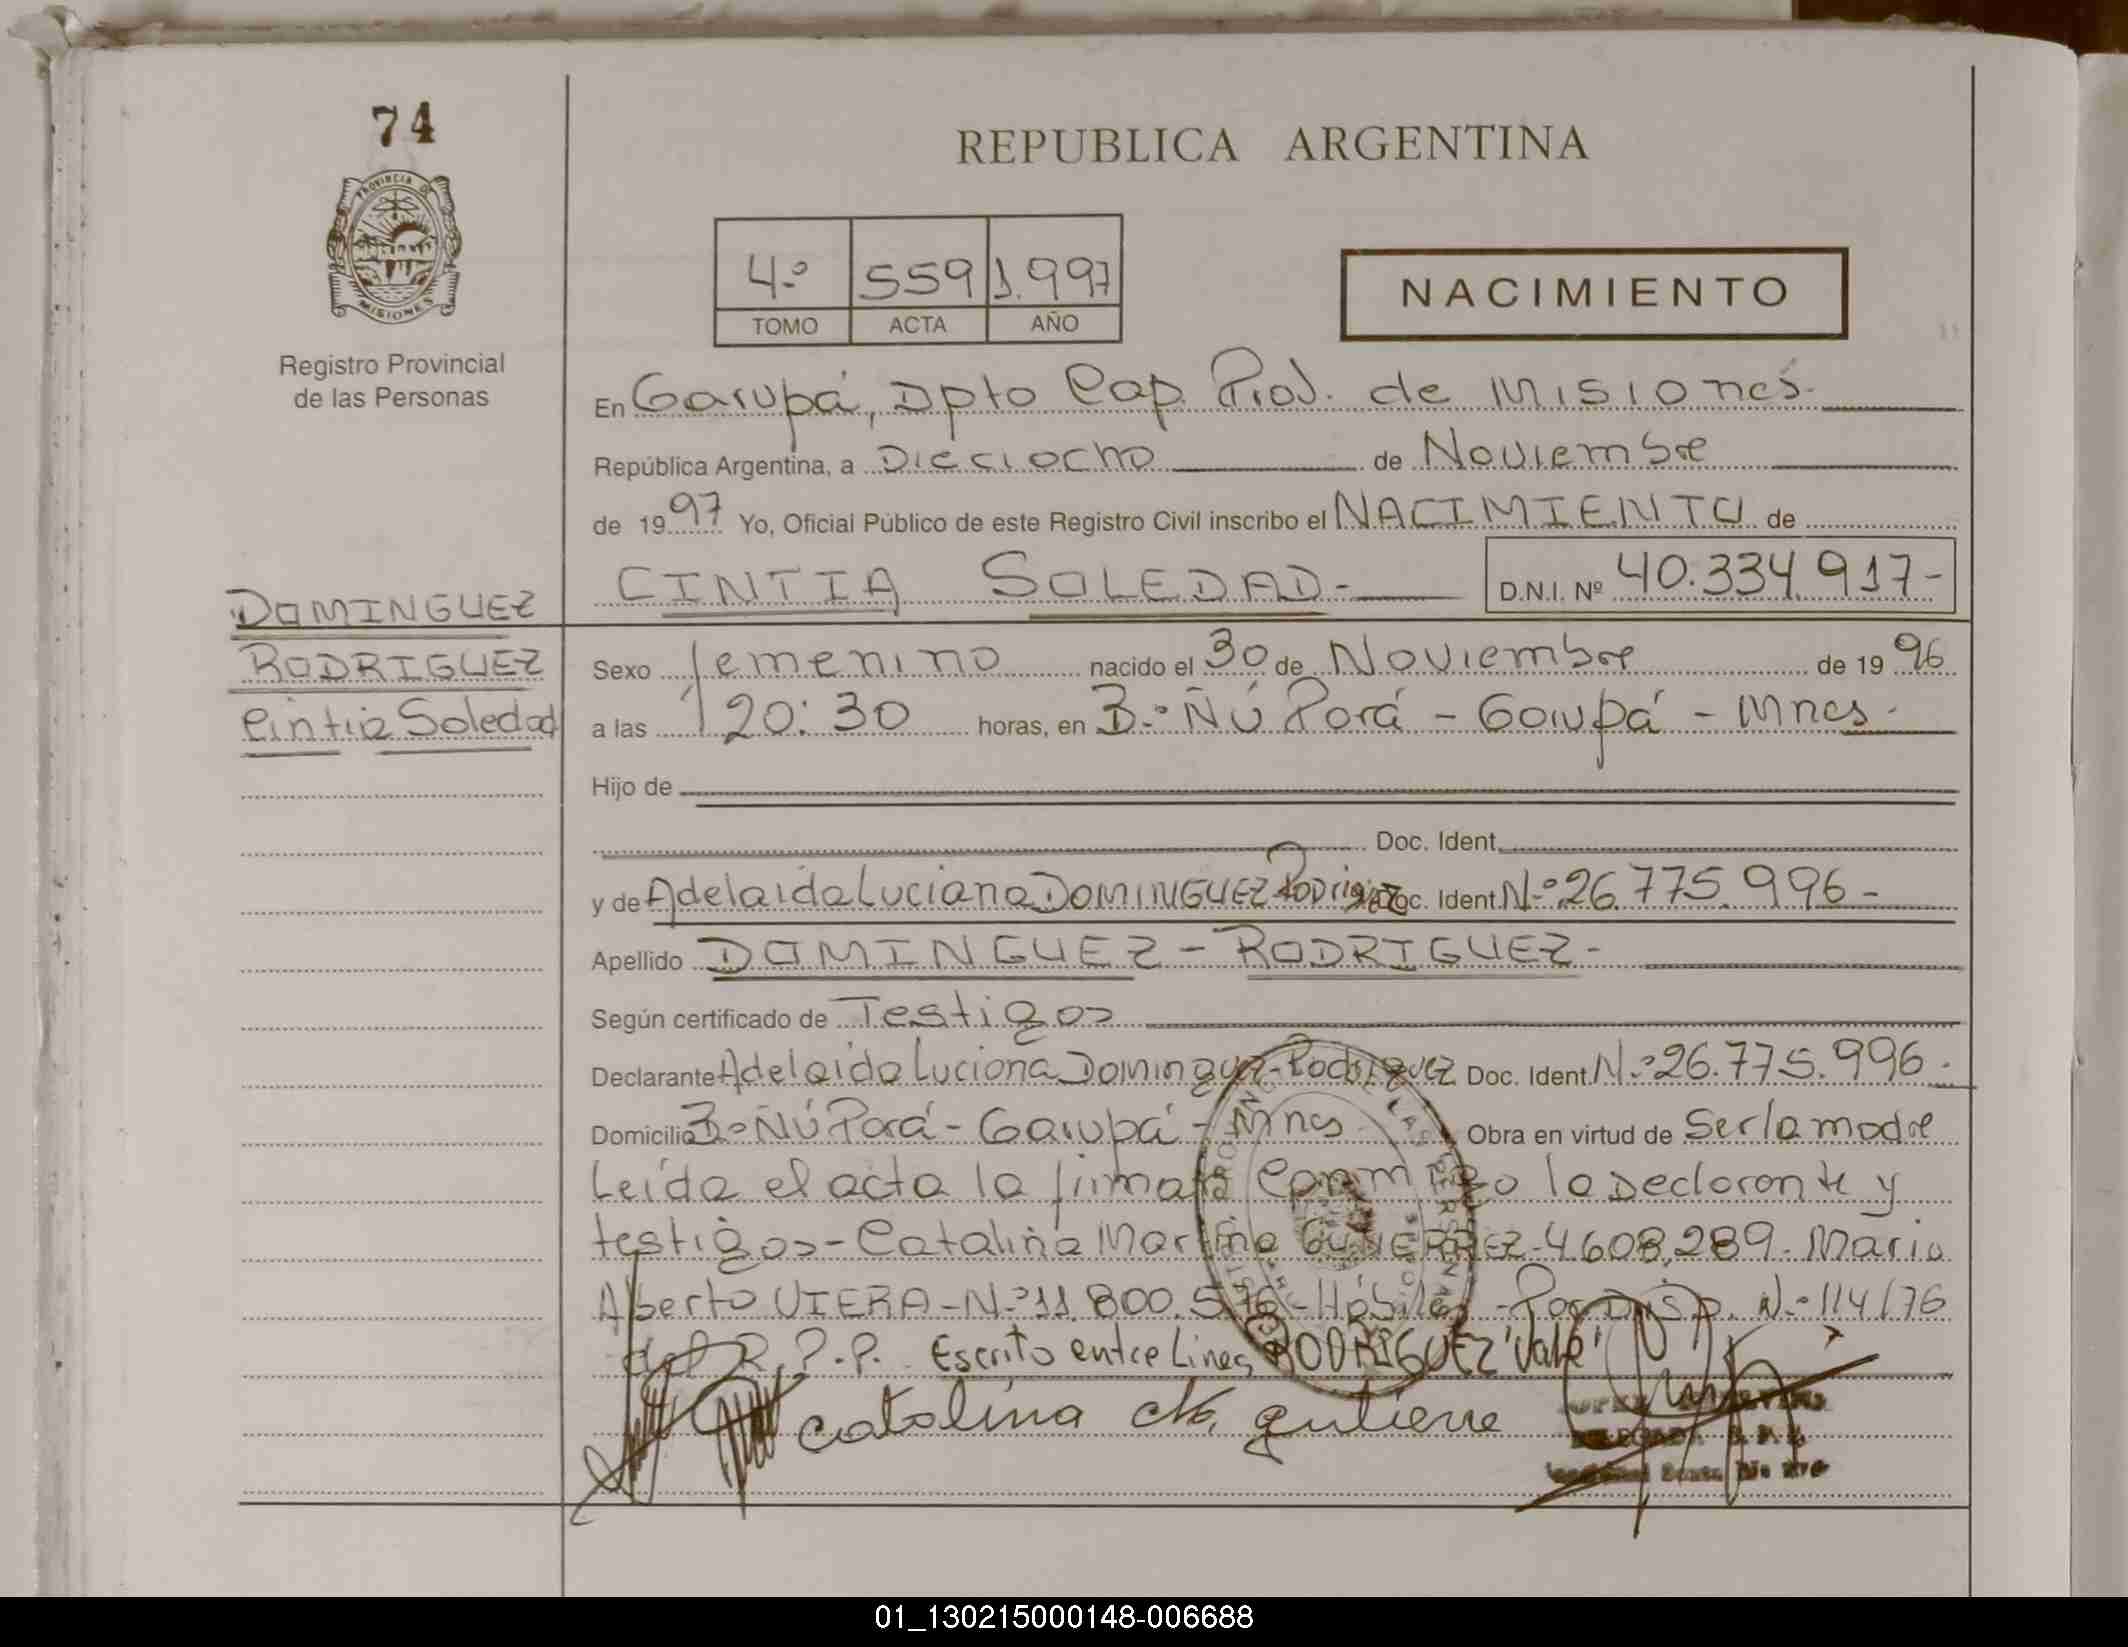 74
REPUBLICA ARGENTINA
PROVINCIA DE
MISIONES
Registro Provincial
de las Personas
4º 559 1.997
TOMO ACTA AÑO
NACIMIENTO
En Garupá, Dpto Cap. Prov. de Misiones.
República Argentina, a Dieciocho de Noviembre
de 1997 Yo, Oficial Público de este Registro Civil inscribo el NACIMIENTO de
CINTIA SOLEDAD- D.N.I. Nº 40.334.917-
DOMINGUEZ
RODRIGUEZ
Cintia Soledad
Sexo femenino nacido el 30 de Noviembre de 1996
a las 20:30 horas, en B.º Ñú Porá - Garupá - Mnes.
Hijo de
Doc. Ident.
y de Adelaida Luciana DOMINGUEZ Rodriguez Doc. Ident. N.º 26.775.996-
Apellido DOMINGUEZ - RODRIGUEZ-
Según certificado de Testigos
Declarante Adelaida Luciana Dominguez-Rodriguez Doc. Ident. N.º 26.775.996.
Domicilio B.º Ñú Porá - Garupá - Mnes Obra en virtud de Ser la madre
Leída el acta la firman conmigo la Declarante y
testigos- Catalina Martina GUTIERREZ-4.608.289. Mario
Alberto VIERA-N.º 11.800.576-Hábiles-Por Disp. N.º 114/76
del R.P.P. Escrito entre Lineas RODRIGUEZ 'Vale'
Catalina M. gutierre
DELEGADA
01_130215000148-006688